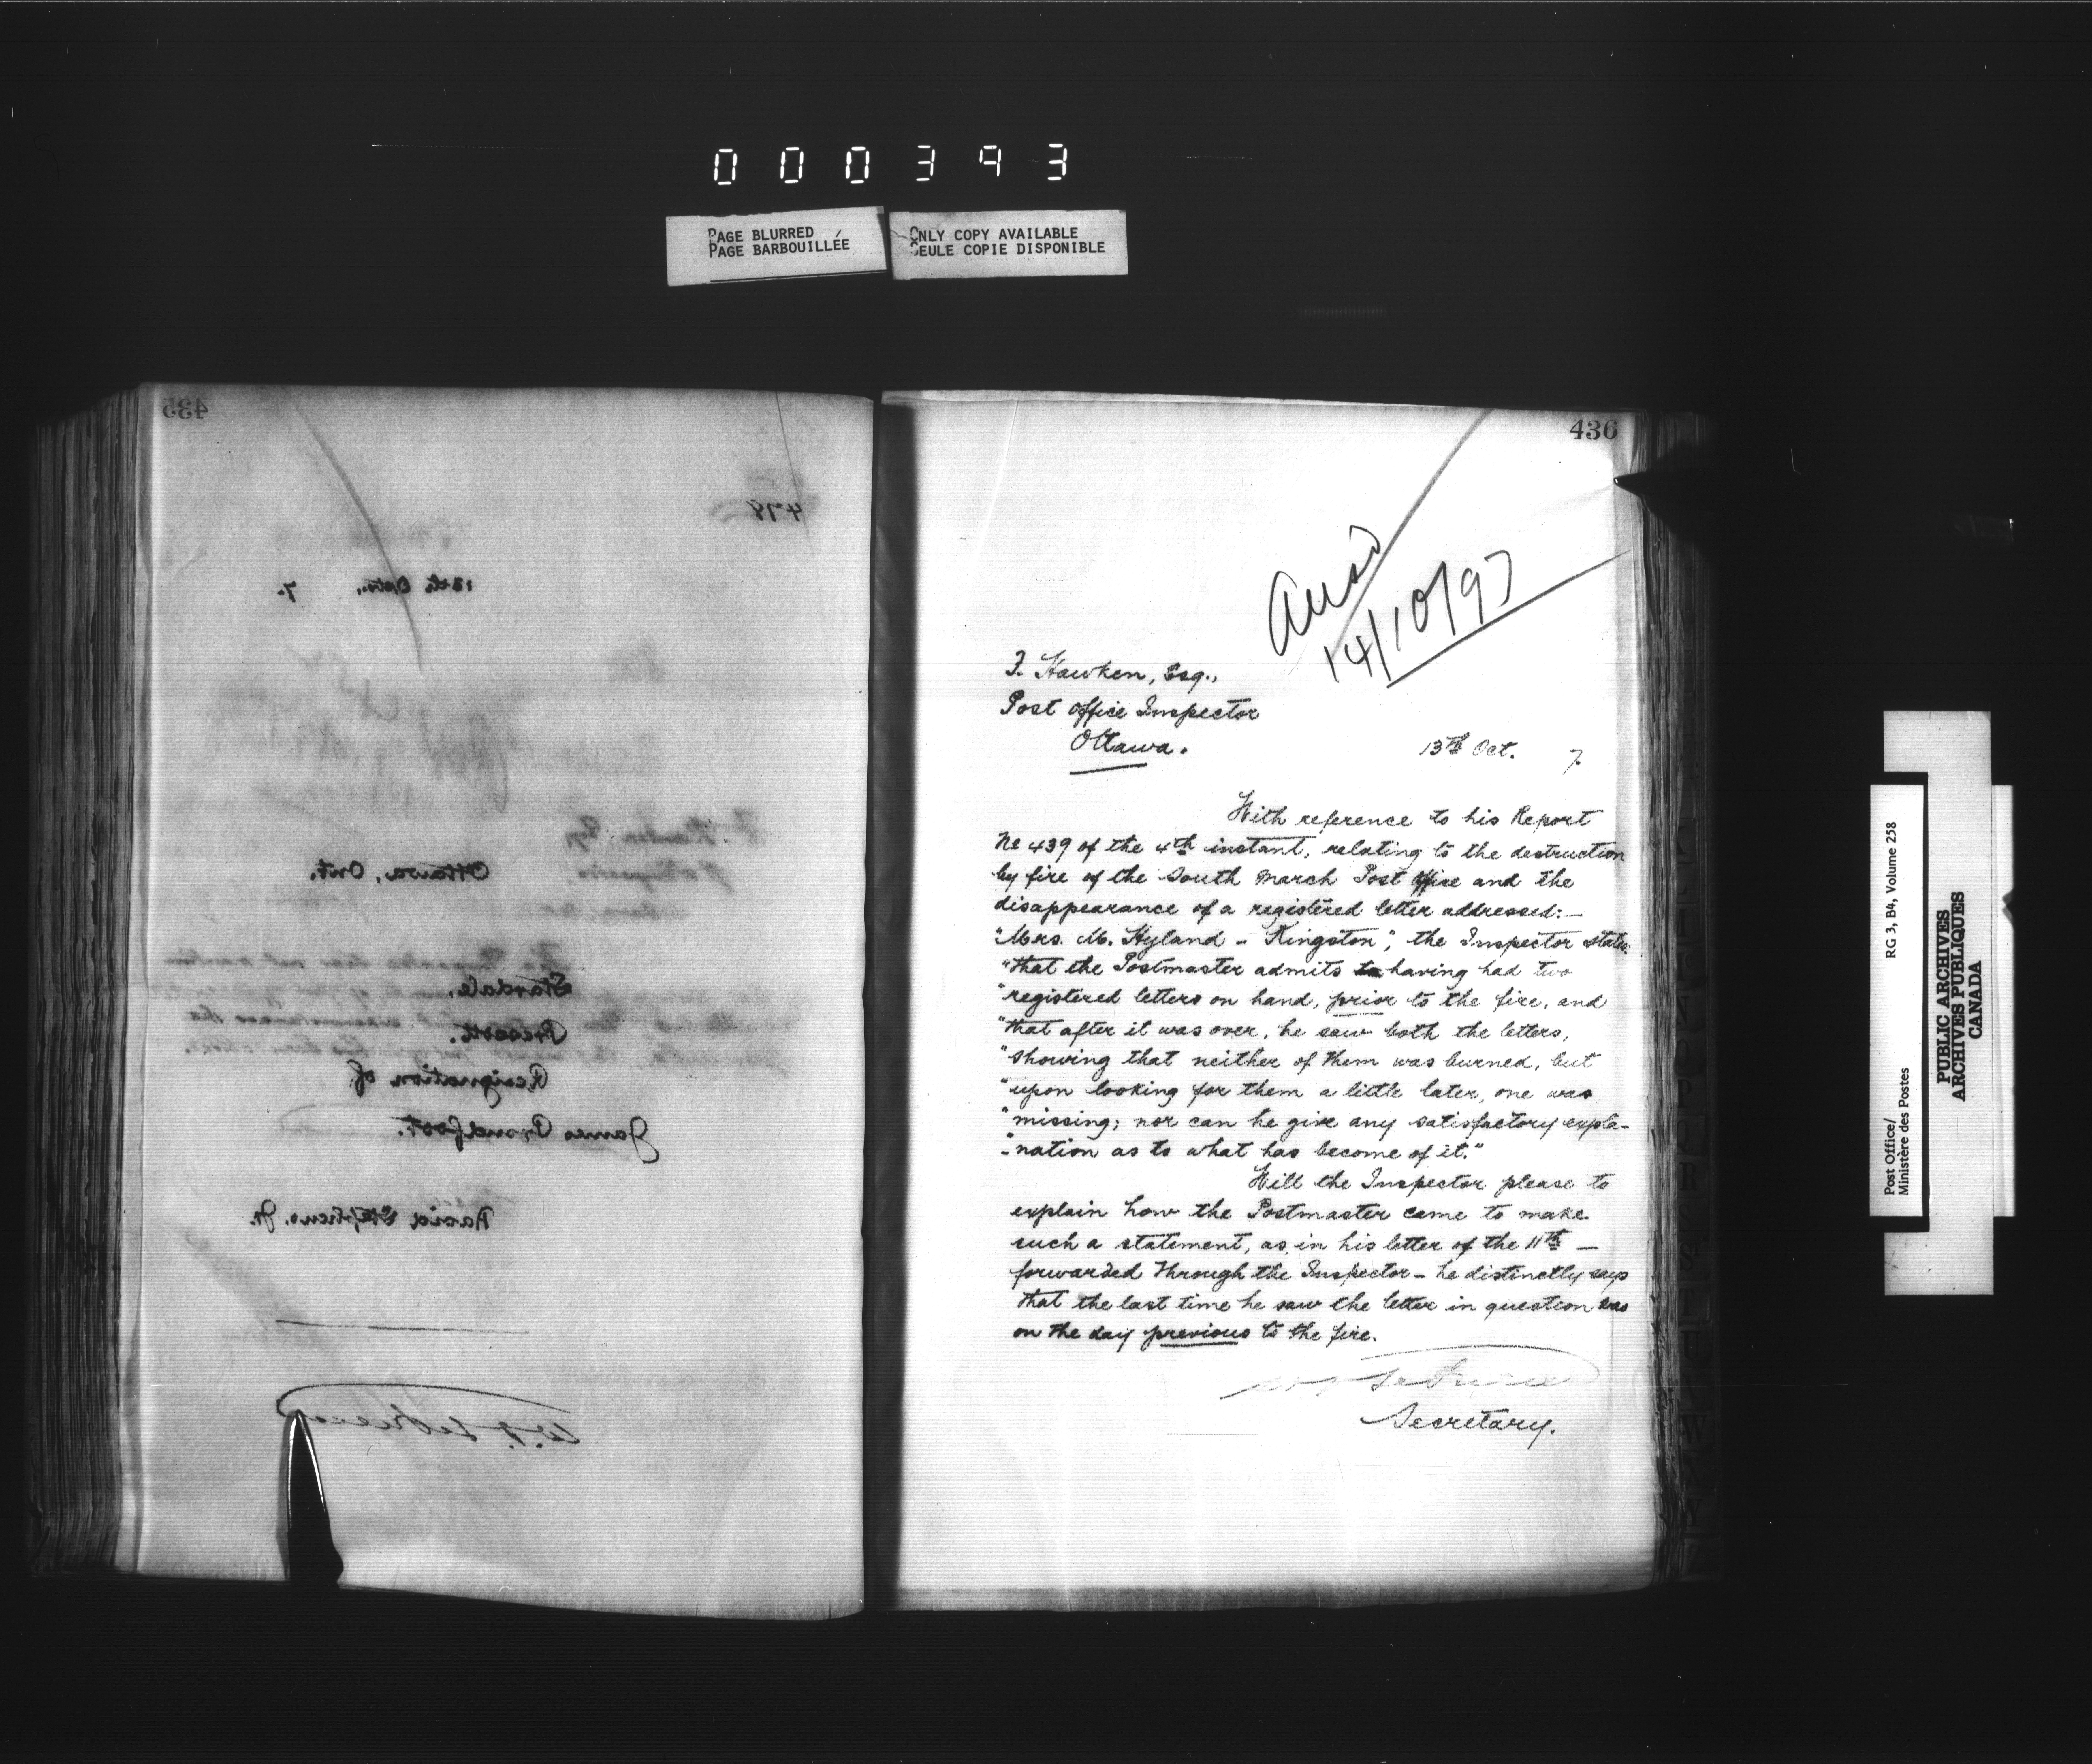 000393
PAGE BLURRED
PAGE BARBOUILLÉE
ONLY COPY AVAILABLE
SEULE COPIE DISPONIBLE
435
478
13th Octr., 7.
Ottawa, Ont.
Stardale,
Prescott.
Resignation of
James Proudfoot.
David Stephens, Jr.
436
Ansd
14/10/97
F. Hawken, Esq.,
Post Office Inspector
Ottawa.
13th Oct. 7.
With reference to his Report
No 439 of the 4th instant, relating to the destruction
by fire of the South March Post Office and the
disappearance of a registered letter addressed:—
"Mrs. M. Hyland - Kingston", the Inspector states
"that the Postmaster admits to having had two
"registered letters on hand, prior to the fire, and
"that after it was over, he saw both the letters,
"showing that neither of them was burned, but
"upon looking for them a little later, one was
"missing; nor can he give any satisfactory expla-
"nation as to what has become of it."
Will the Inspector please to
explain how the Postmaster came to make
such a statement, as, in his letter of the 11th —
forwarded through the Inspector — he distinctly says
that the last time he saw the letter in question was
on the day previous to the fire.
Secretary.
Post Office/ RG 3, B4, Volume 258
Ministère des Postes
PUBLIC ARCHIVES
ARCHIVES PUBLIQUES
CANADA